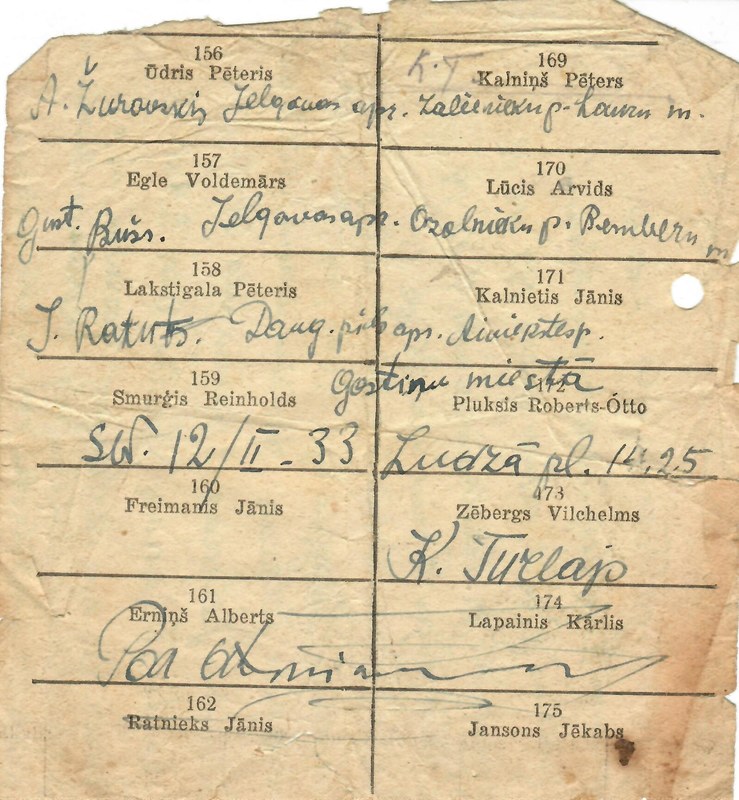 156
Ūdris Pēteris
K. T.
169
Kalniņš Pēters
A. Žurovskis Jelgavas apr. Zaļenieku p. Lauru m.
157
Egle Voldemārs
170
Lūcis Arvids
Gust. Bušs. Jelgavas apr. Ozolnieku p. Bemberu m
158
Lakstigala Pēteris
171
Kalnietis Jānis
J. Rakuts. Daug.pils apr. Aiviekstes p.
Gostiņu miestā
159
Smurģis Reinholds
Pluksis Roberts-Ótto
12/II - 33
Ludzā pl. 14.25
160
Freimanis Jānis
173
Zēbergs Vilchelms
K. Turlajs
161
Erniņš Alberts
174
Lapainis Kārlis
162
Ratnieks Jānis
175
Jansons Jēkabs